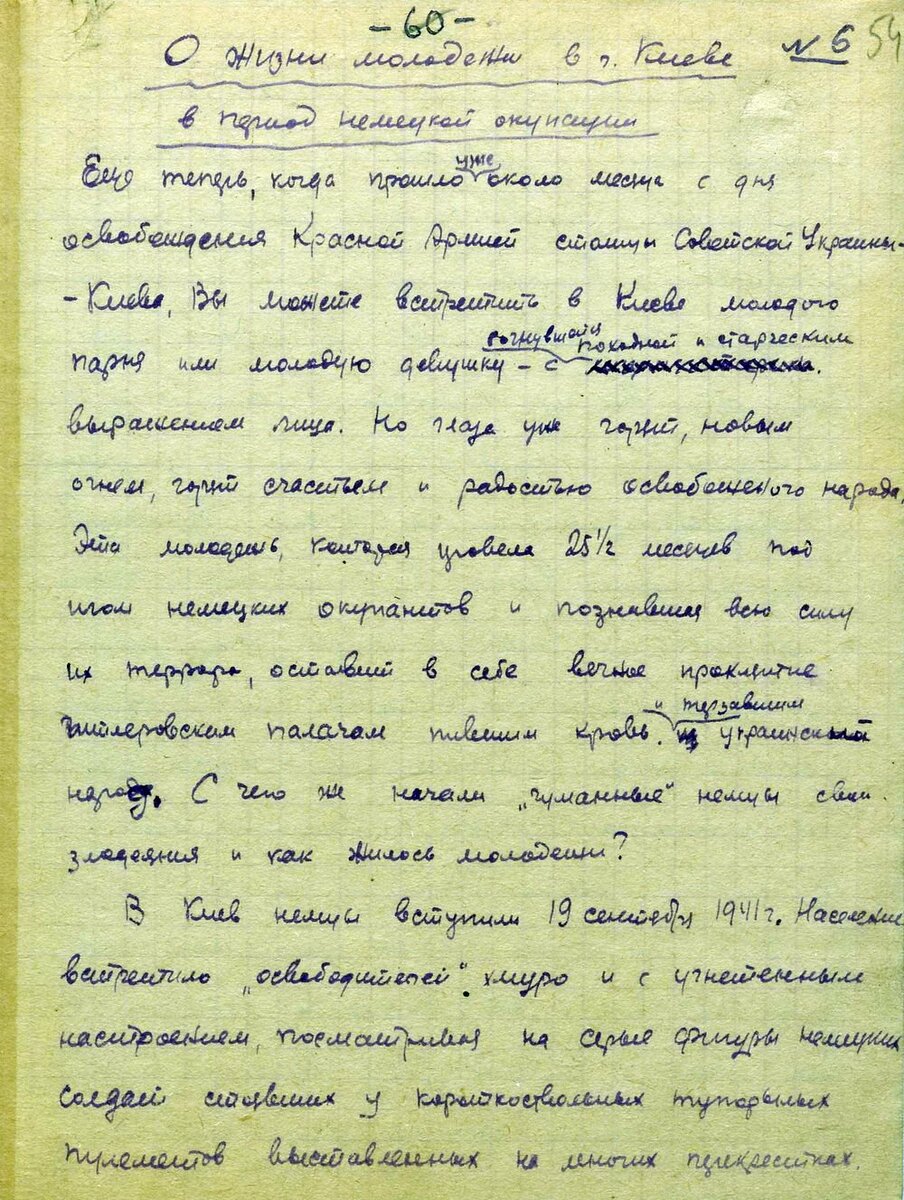 -60-
О жизни молодежи в г. Киеве
№ 6
54
в период немецкой окупации
Еще теперь, когда прошло уже около месяца с дня
освобождения Красной Армией столицы Советской Украины-
-Киева, Вы можете встретить в Киеве молодого
парня или молодую девушку – с согнувшейся походкой и старческим
выражением лица. Но глаза уже горят, новым
огнем, горят счастьем и радостью освобоженого народа.
Эта молодежь, которая провела 25½ месяцев под
игом немецких окупантов и познавшая всю силу
их террора, оставит в себе вечное проклятие
гитлеровским палачам пившим кровь и терзавшим украинский
народ. С чего же начали „гуманные" немцы свои
злодеяния и как жилось молодежи?
В Киев немцы вступили 19 сентября 1941 г. Население
встретило „освободителей" хмуро и с угнетенным
настроением, посматривая на серые фигуры немецких
солдат стоявших у короткоствольных тупорылых
пулеметов выставленных на многих перекрестках.